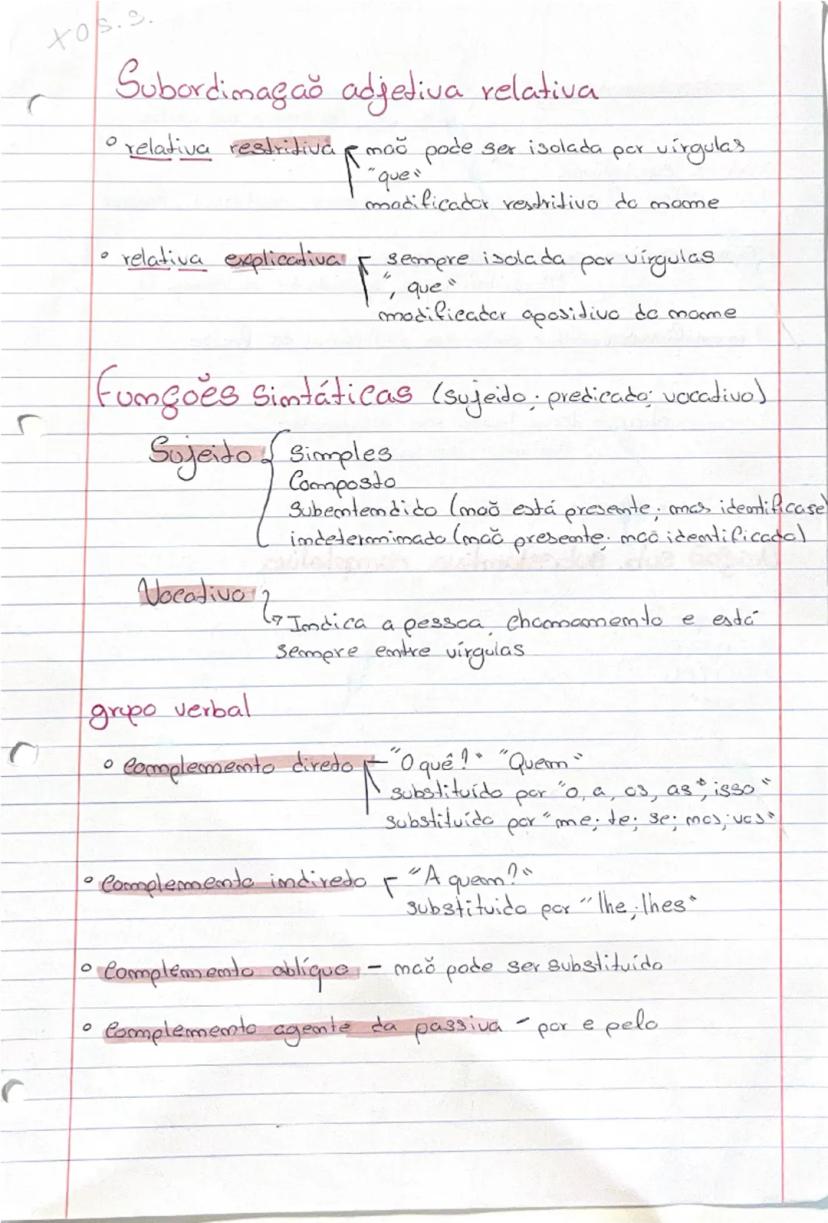 xos.s.
Subordinação adjetiva relativa
° relativa restritiva não pode ser isolada por vírgulas
"que"
modificador restritivo do nome
° relativa explicativa sempre isolada por vírgulas
", que"
modificador apositivo do nome
Funções sintáticas (sujeito; predicado; vocativo)
Sujeito simples
Composto
Subentendido (não está presente; mas identificase)
indeterminado (não presente; não identificado)
Vocativo
↳ Indica a pessoa, chamamento e está
sempre entre vírgulas
grupo verbal
° Complemento direto - "O quê?" "Quem"
substituído por "o, a, os, as", isso"
substituído por "me; te; se; nos; vos"
° Complemento indireto "A quem?"
substituido por "lhe, lhes"
° Complemento oblíquo - não pode ser substituído
° Complemento agente da passiva - por e pelo